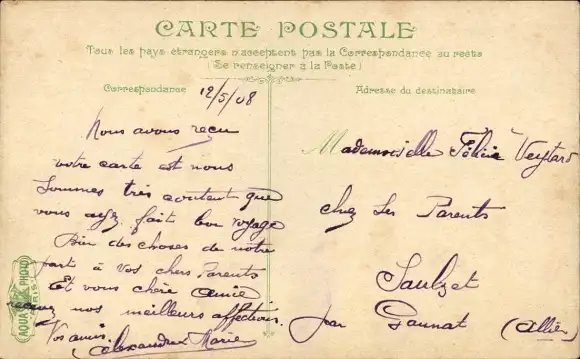 CARTE POSTALE
Tous les pays étrangers n'acceptent pas la Correspondance au recto
(Se renseigner à la Poste)
Correspondance
12/5/08
Nous avons reçu
votre carte et nous
Sommes très contant que
vous ayez fait bon voyage
Bien des choses de notre
part à Vos chers Parents
Et vous chère amie
recevez nos meilleurs affections.
Vos amis.
Alexandre Marie
AQUA PHOTO
PARIS
Adresse du destinataire
Mademoiselle Félicie
chez Ses Parents
Saulzet
par Gannat (Allier)